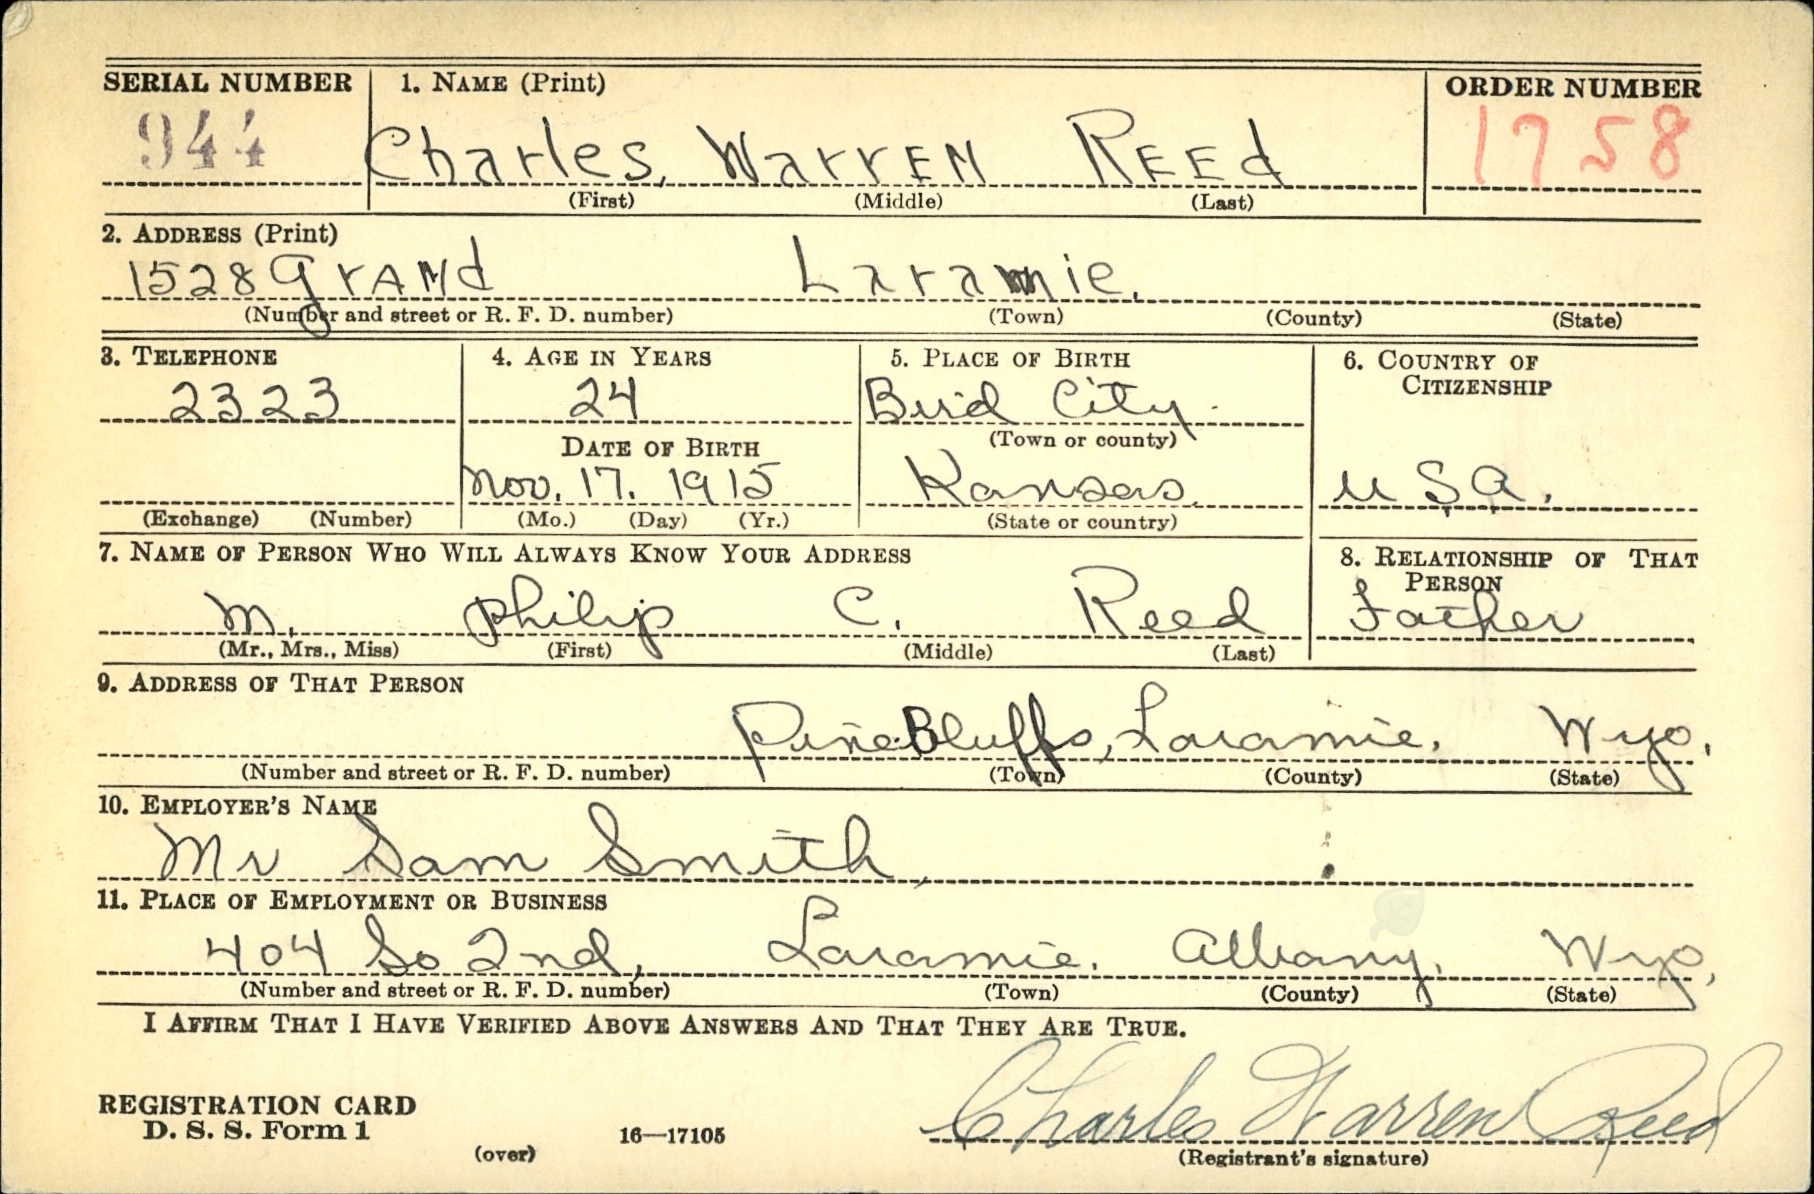 SERIAL NUMBER 1. NAME (Print) ORDER NUMBER
944 Charles, WarrEN REEd 1758
(First) (Middle) (Last)
2. ADDRESS (Print)
1528 GrANd Laramie.
(Number and street or R. F. D. number) (Town) (County) (State)
3. TELEPHONE 4. AGE IN YEARS 5. PLACE OF BIRTH 6. COUNTRY OF CITIZENSHIP
2323 24 Bird City.
DATE OF BIRTH (Town or county)
Nov. 17. 1915 Kansas. USA.
(Exchange) (Number) (Mo.) (Day) (Yr.) (State or country)
7. NAME OF PERSON WHO WILL ALWAYS KNOW YOUR ADDRESS 8. RELATIONSHIP OF THAT PERSON
M. Philip C. Reed Father
(Mr., Mrs., Miss) (First) (Middle) (Last)
9. ADDRESS OF THAT PERSON
Pine Bluffs, Laramie. Wyo.
(Number and street or R. F. D. number) (Town) (County) (State)
10. EMPLOYER'S NAME
Mr Sam Smith,
11. PLACE OF EMPLOYMENT OR BUSINESS
404 So 2nd, Laramie. Albany. Wyo,
(Number and street or R. F. D. number) (Town) (County) (State)
I AFFIRM THAT I HAVE VERIFIED ABOVE ANSWERS AND THAT THEY ARE TRUE.
REGISTRATION CARD
D. S. S. Form 1 16—17105 Charles Warren Reed
(over) (Registrant's signature)